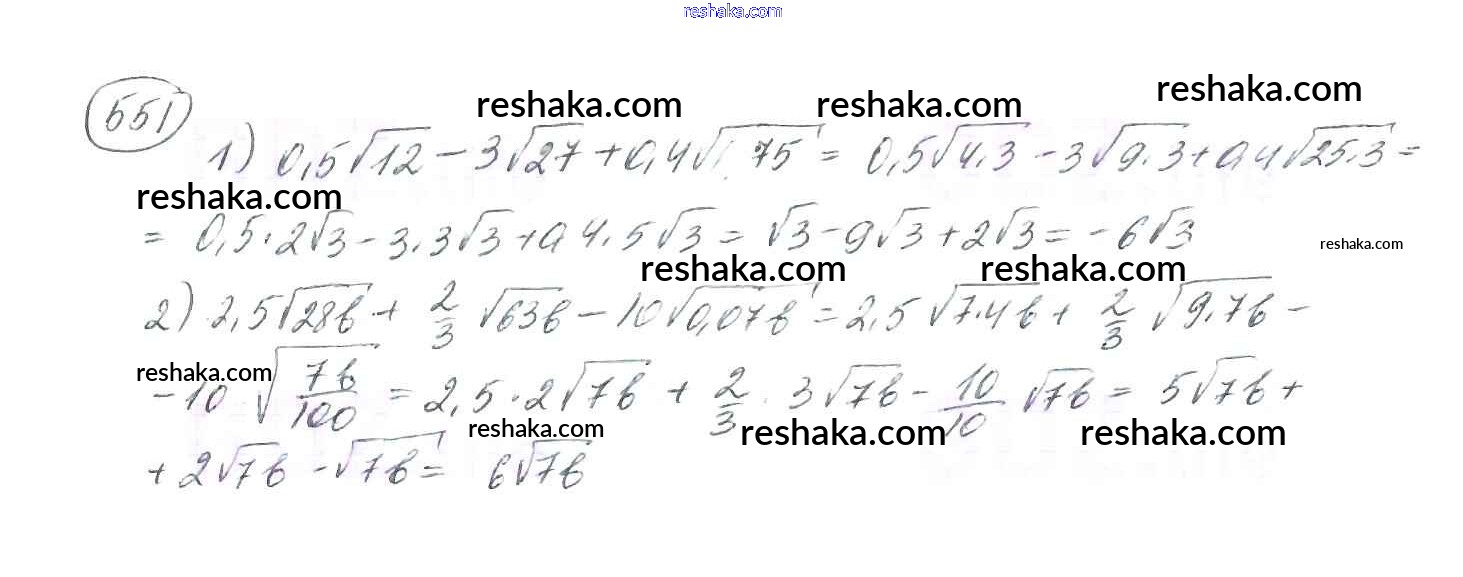 reshaka.com
551
reshaka.com reshaka.com reshaka.com
1) 0,5√12 - 3√27 + 0,4√75 = 0,5√4·3 - 3√9·3 + 0,4√25·3 =
reshaka.com
= 0,5·2√3 - 3·3√3 + 0,4·5√3 = √3 - 9√3 + 2√3 = -6√3
reshaka.com
reshaka.com reshaka.com
2) 2,5√28b + 2/3 √63b - 10√0,07b = 2,5√7·4b + 2/3 √9·7b -
reshaka.com
- 10 √7b/100 = 2,5·2√7b + 2/3 · 3√7b - 10/10 √7b = 5√7b +
reshaka.com reshaka.com reshaka.com
+ 2√7b - √7b = 6√7b